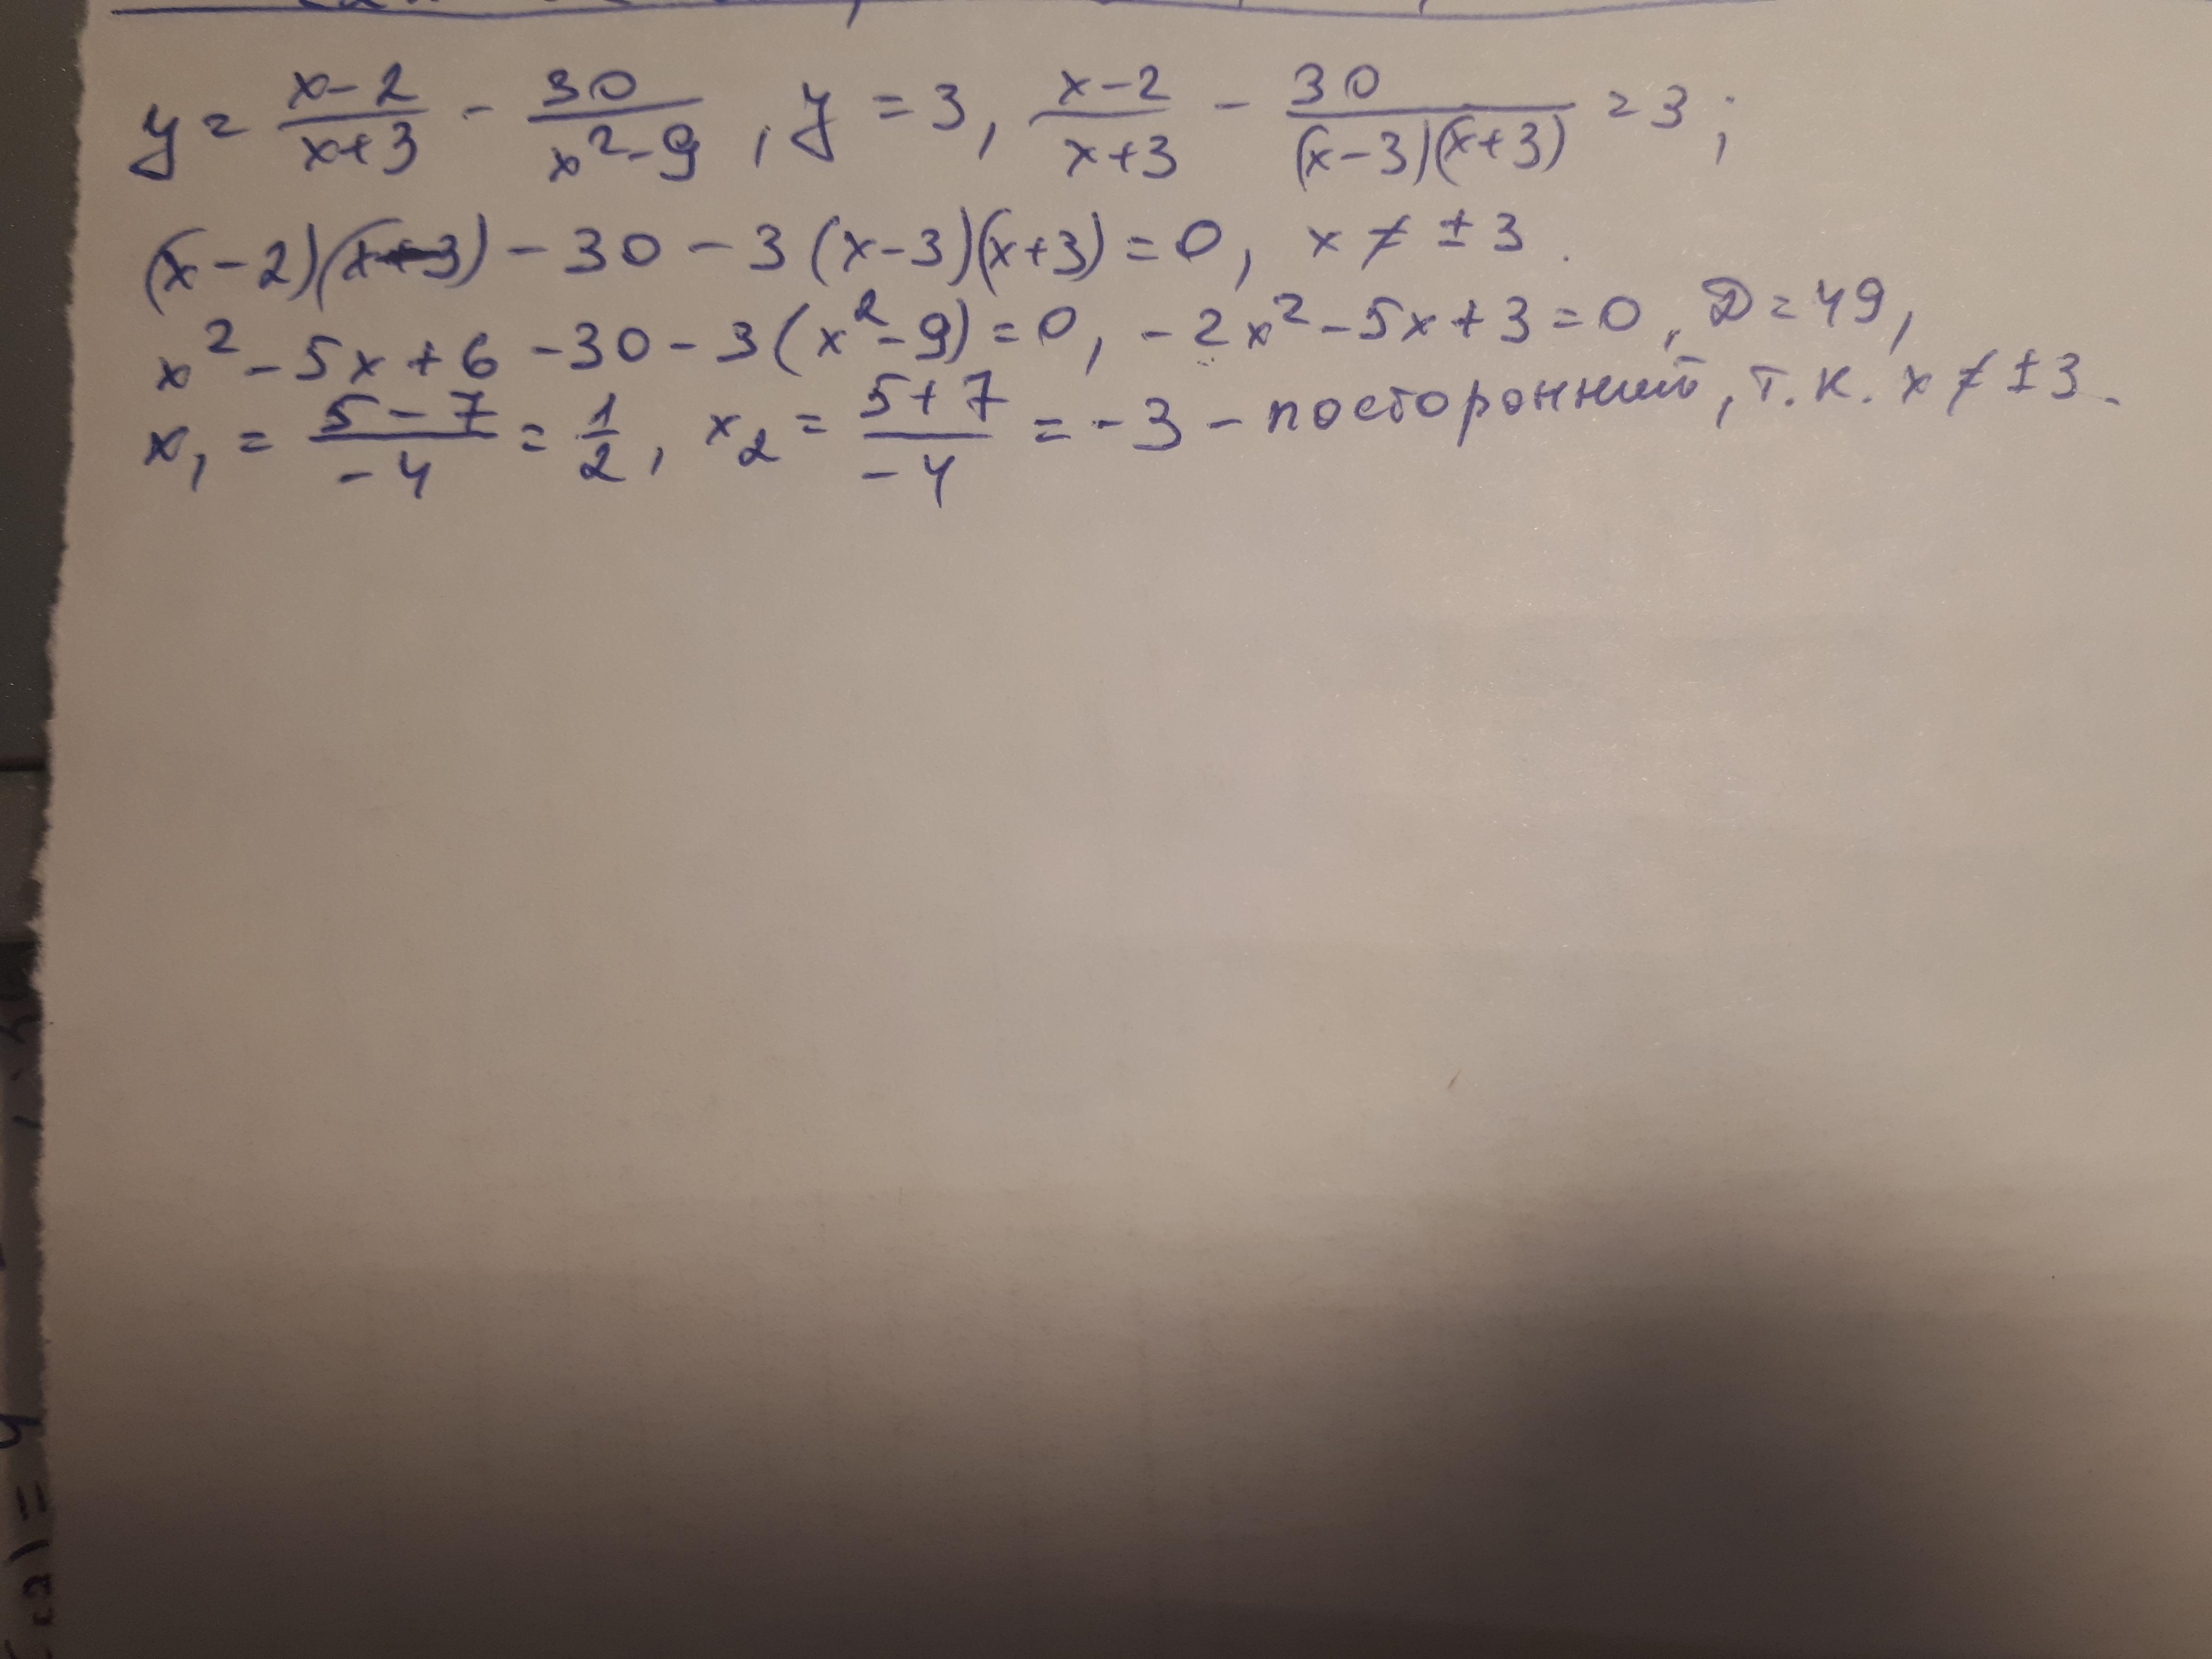 y = x-2/x+3 - 30/x²-9, y = 3, x-2/x+3 - 30/(x-3)(x+3) = 3;
(x-2)(x-3) - 30 - 3(x-3)(x+3) = 0, x ≠ ±3.
x² - 5x + 6 - 30 - 3(x² - 9) = 0, -2x² - 5x + 3 = 0, D = 49,
x₁ = 5-7/-4 = 1/2, x₂ = 5+7/-4 = -3 - посторонний, т.к. x ≠ ±3.